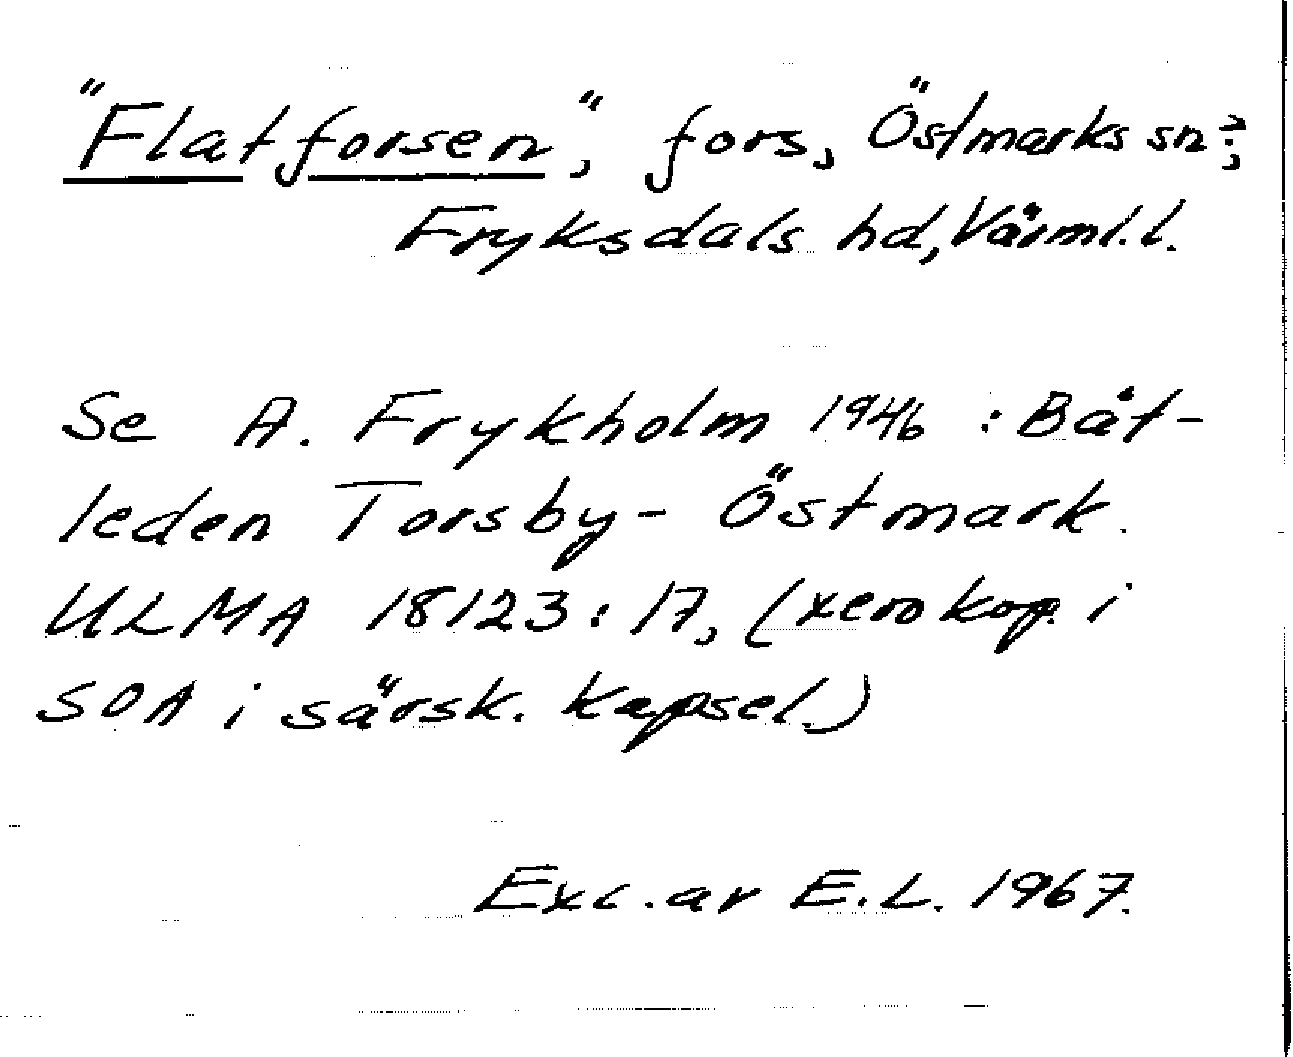 "Flatforsen", fors, Östmarks sn?,
Fryksdals hd, Värml. l.
Se A. Frykholm 1946 : Båt-
leden Torsby - Östmark.
ULMA 18123 : 17, (xerokop. i
SOA i särsk. kapsel.)
Exc. av E. L. 1967.